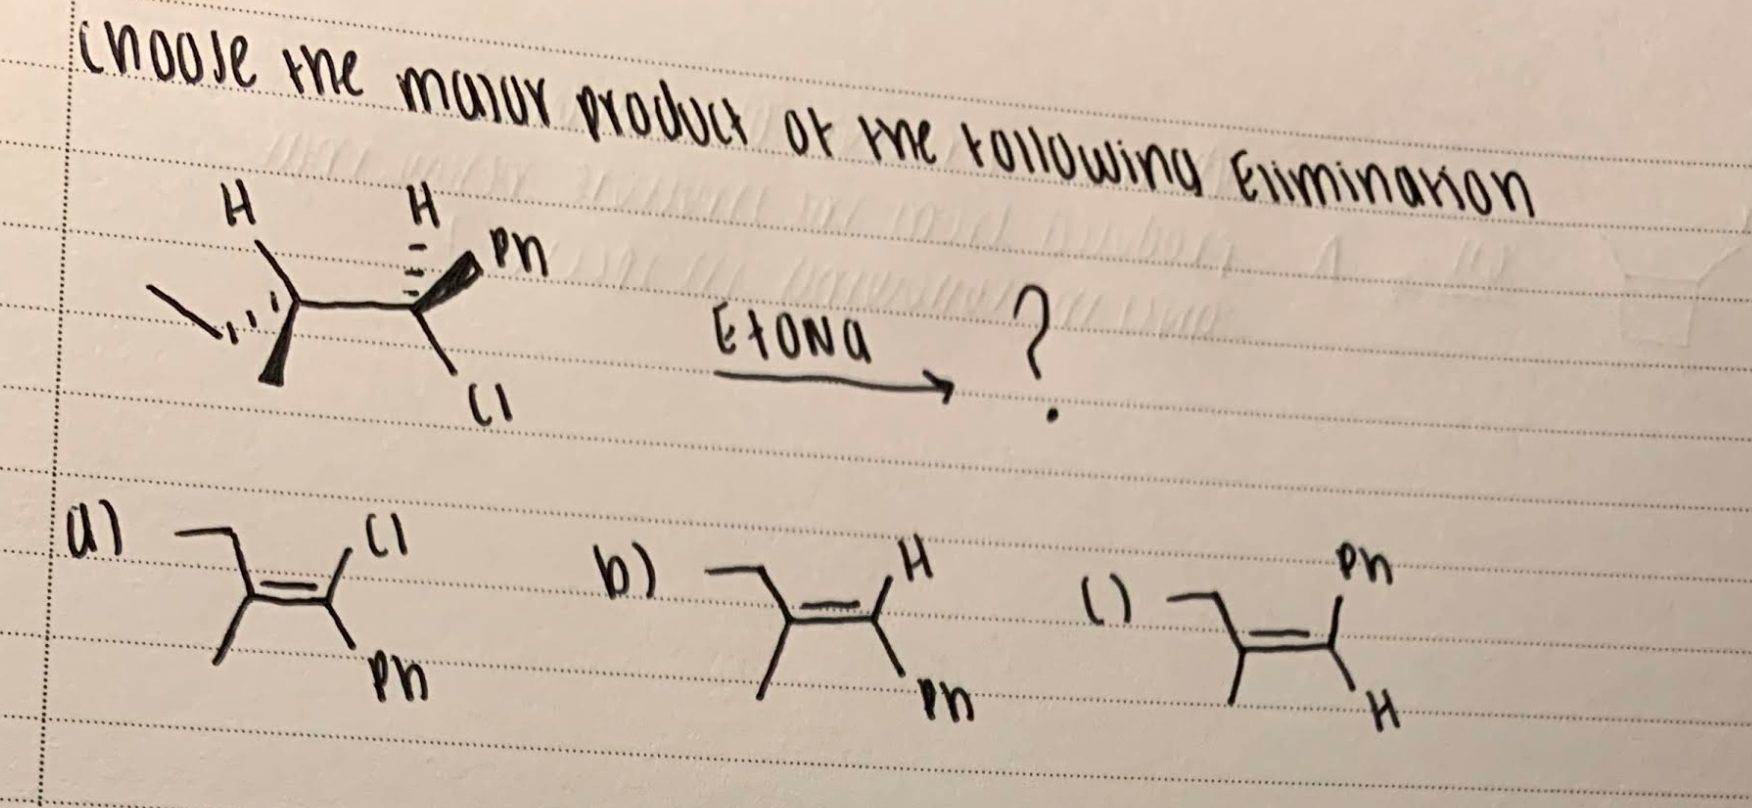 Choose the major product of the following Elimination
H H
Ph
Cl
EtONa
?
a) Cl
Ph
b) H
Ph
c) Ph
H